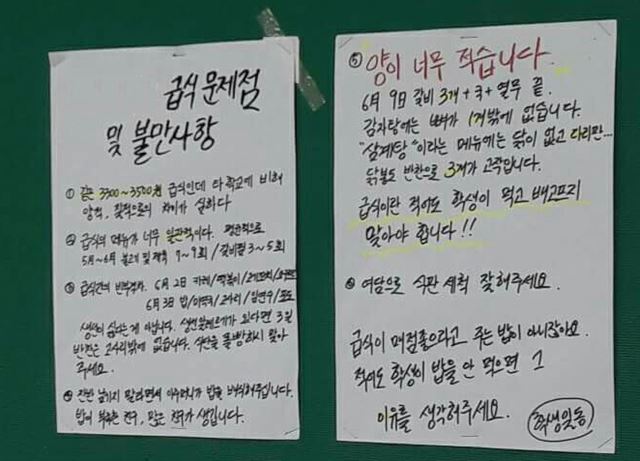 급식 문제점
및 불만사항
① 같은 3300~3500원 급식인데 타 학교에 비해
양적, 질적으로의 차이가 심하다
② 급식의 메뉴가 너무 일관적이다. 평균적으로
5月~6月 불고기 및 제육 7~9회 / 갈비찜 3~5회
③ 6月 2日 카레/떡볶이/
6月 3日 밥/미역국/고사리/임연수/포도
생선이 싫다는 게 아닙니다. 생선알레르기가 있다면 3日
반찬은 고사리밖에 없습니다. 식단을 똑바로 짜
주세요.
④ 잔반 남기지 말라면서 밥을 배식해주십니다.
밥이 부족한 친구, 많은 친구가 생깁니다.
⑤ 양이 너무 적습니다
6月 9日 갈비 3개 + 국 + 열무 끝.
감자탕에는 뼈가 1개밖에 없습니다.
"삼계탕"이라는 메뉴에는 닭이 없고 다리만...
닭봉도 반찬으로 3개가 고작입니다.
급식이란 적어도 학생이 먹고 배고프지
말아야 합니다!!
⑥ 여담으로 식판 세척 잘해주세요.
급식이 매점좋으라고 주는 밥이 아니잖아요.
적어도 학생이 밥을 안 먹으면 그
이유를 생각해주세요.
학생일동